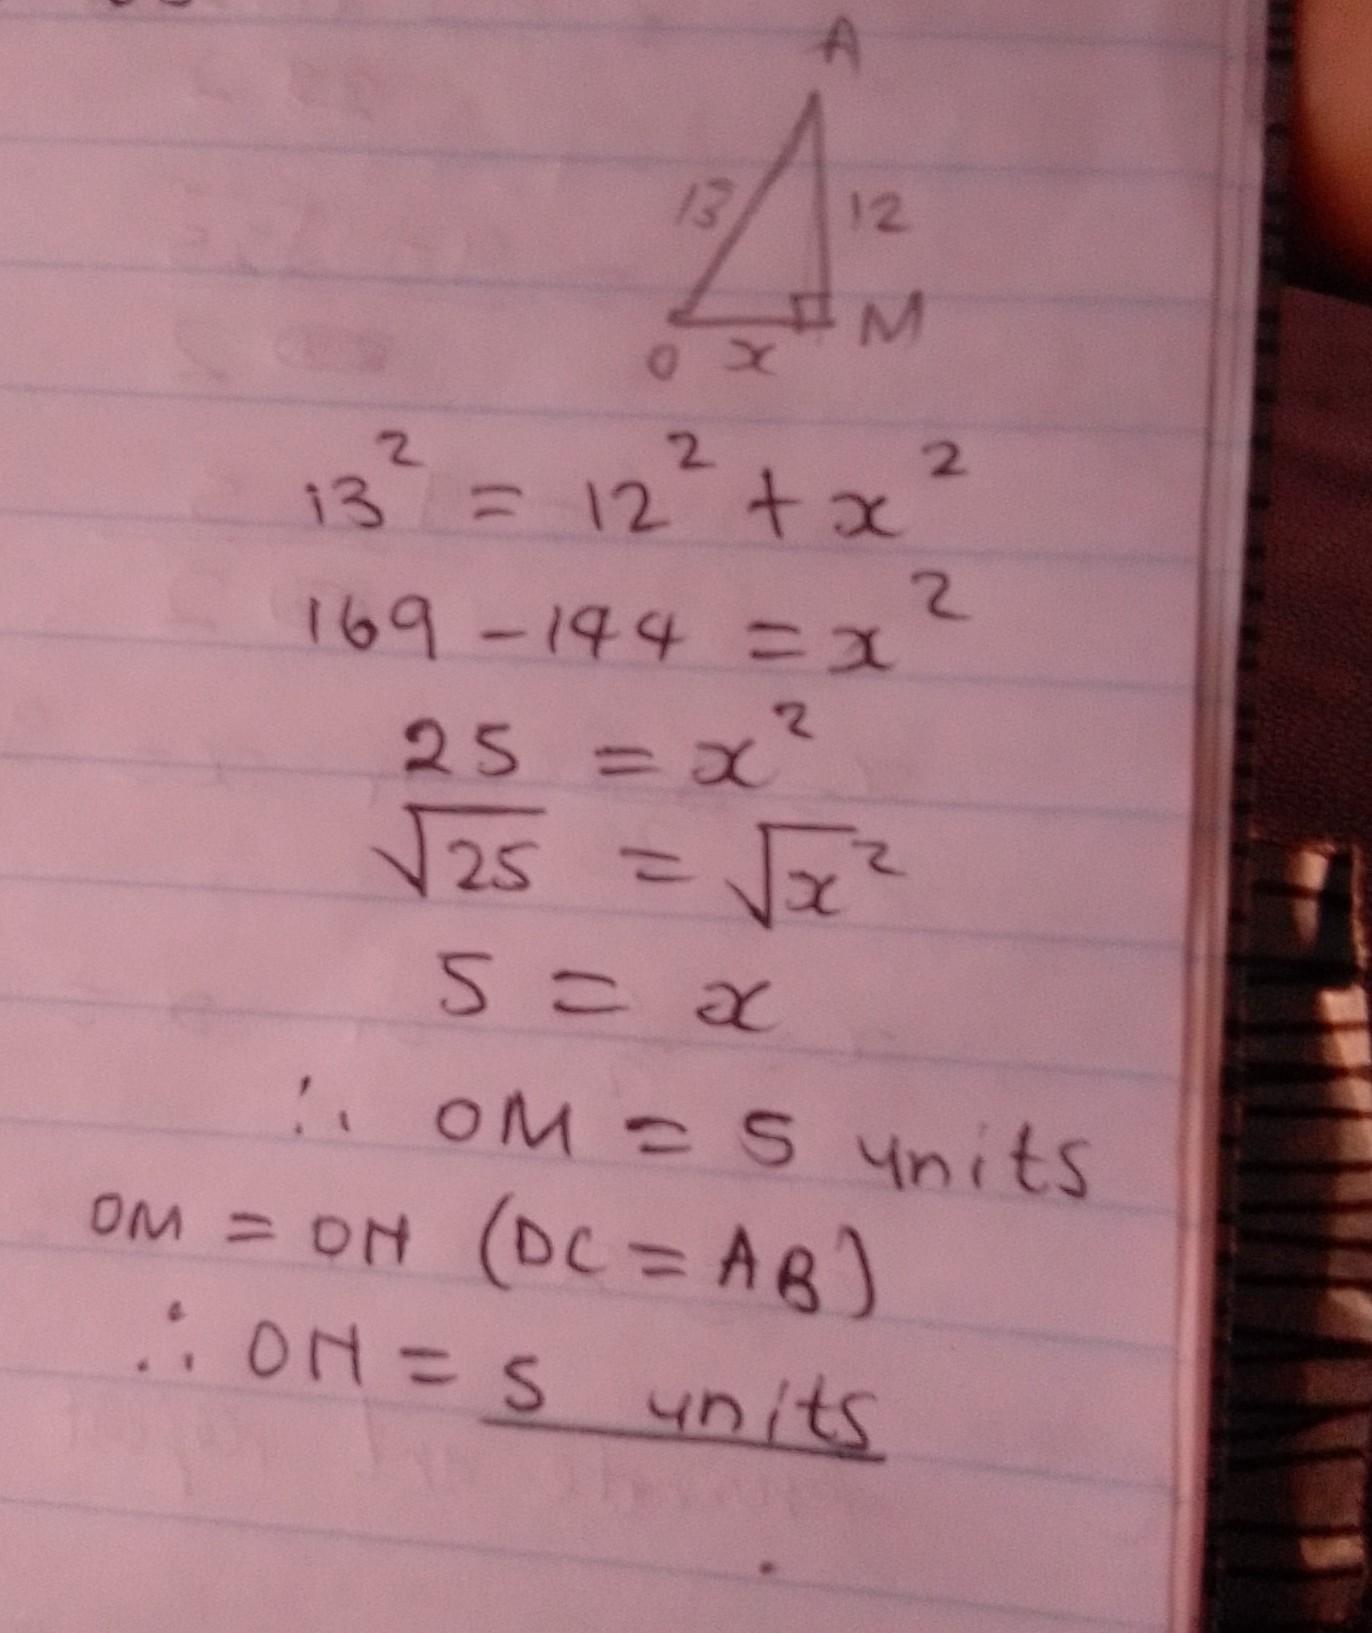 A
13 12
O x M
13² = 12² + x²
169 - 144 = x²
25 = x²
√25 = √x²
5 = x
∴ OM = 5 units
OM = ON (DC = AB)
∴ ON = 5 units